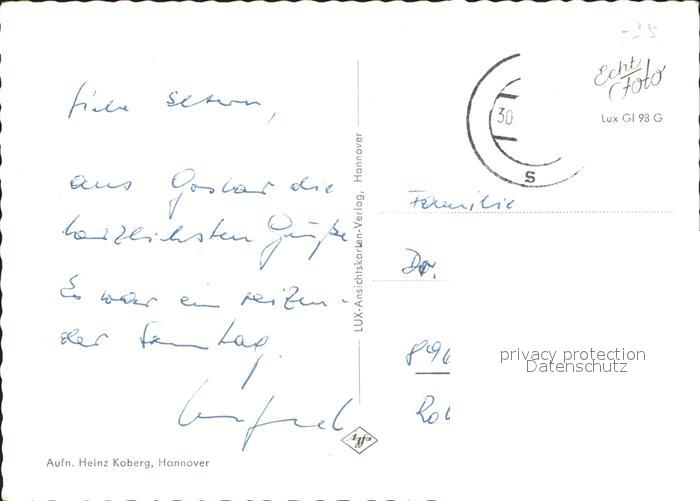 -35
Echt
Foto
Lux Gl 98 G
30
S
Liebe Eltern,
aus Goslar die
herzlichsten Grüße
Es war ein reizen-
der Sonntag.
LUX-Ansichtskarten-Verlag, Hannover
Familie
Dr.
896
privacy protection
Datenschutz
Agfa
Aufn. Heinz Koberg, Hannover